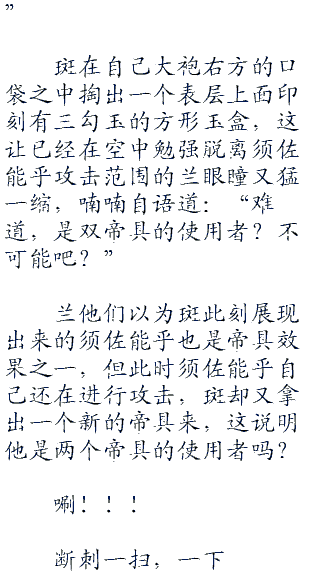 ”
斑在自己大袍右方的口
袋之中掏出一个表层上面印
刻有三勾玉的方形玉盒，这
让已经在空中勉强脱离须佐
能乎攻击范围的兰眼瞳又猛
一缩，喃喃自语道：“难
道，是双帝具的使用者？不
可能吧？”
兰他们以为斑此刻展现
出来的须佐能乎也是帝具效
果之一，但此时须佐能乎自
己还在进行攻击，斑却又拿
出一个新的帝具来，这说明
他是两个帝具的使用者吗？
唰！！！
断刺一扫，一下